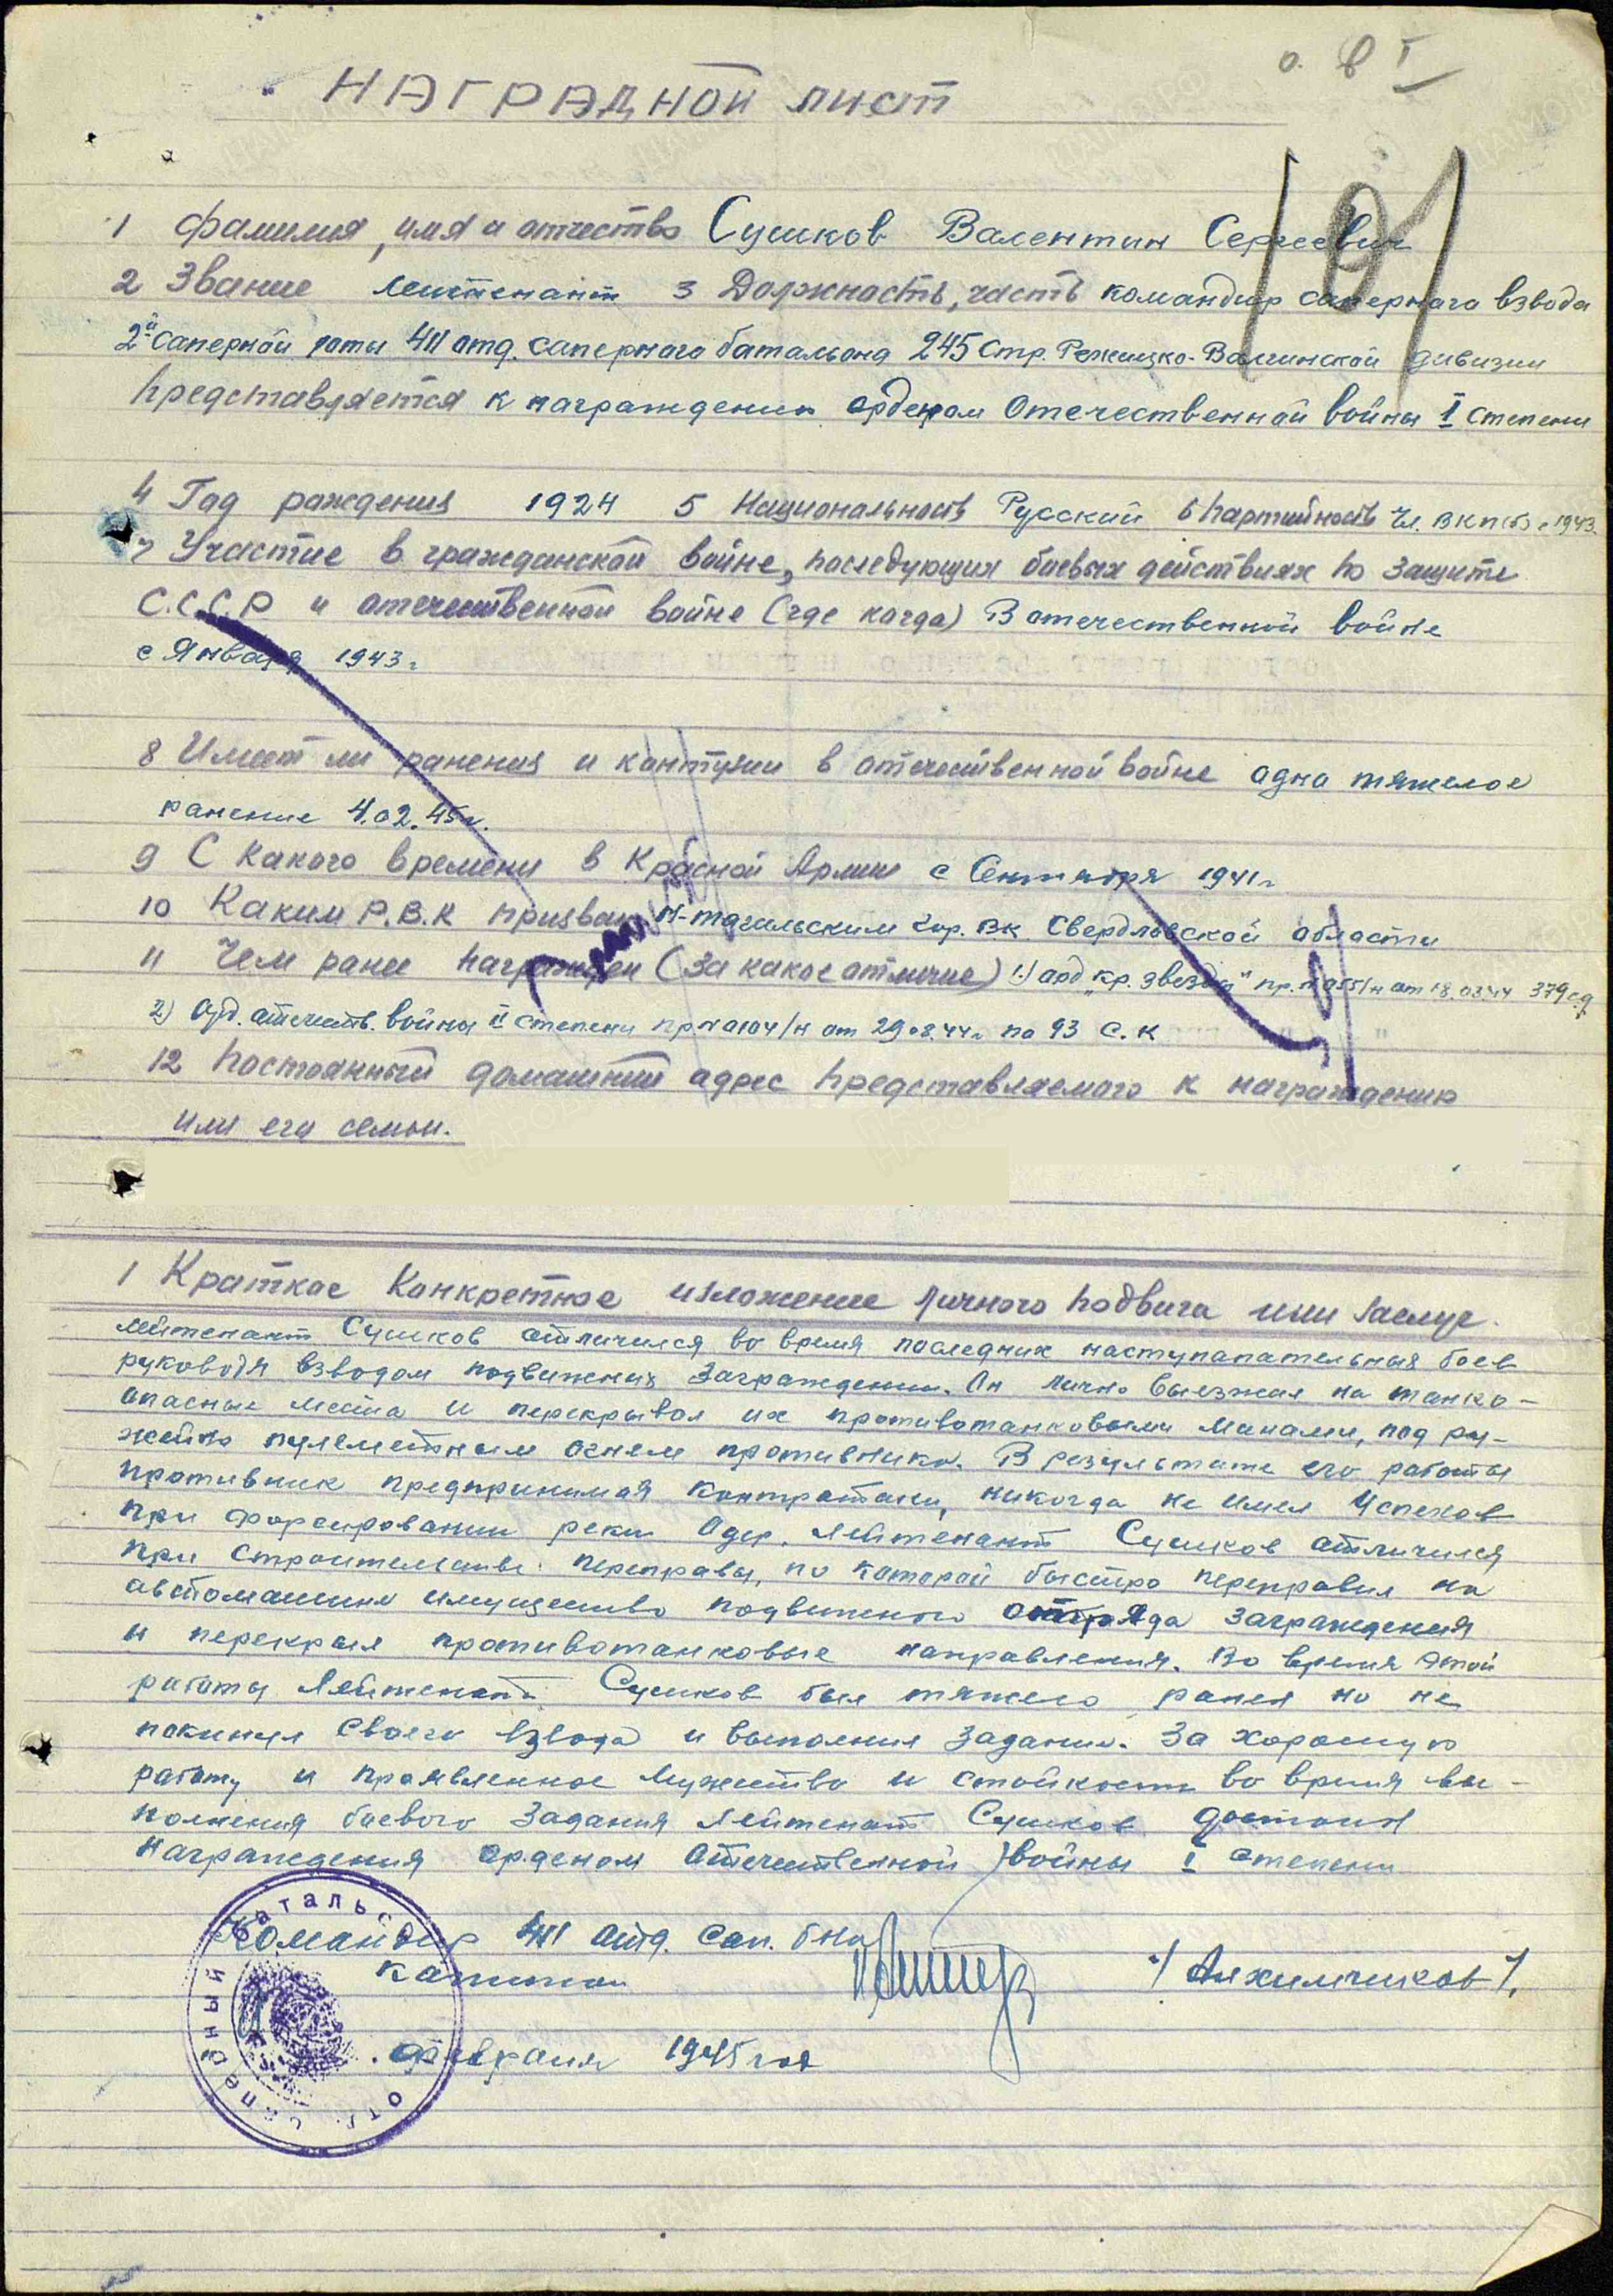 о. в I
НАГРАДНОЙ лист
1 Фамилия, имя и отчество Сушков Валентин Сергеевич
2 Звание лейтенант 3 Должность, часть командир саперного взвода
2й саперной роты 411 отд. саперного батальона 245 Стр. Режицко-Валгинской дивизии
Представляется к награждению орденом Отечественной войны I степени
4 Год рождения 1924 5 Национальность Русский 6 Партийность Чл. ВКП(б) с 1943
7 Участие в гражданской войне, последующих боевых действиях по защите
С.С.С.Р и отечественной войне (где когда) В отечественной войне
с Января 1943г
8 Имеет ли ранения и контузии в отечественной войне одно тяжелое
ранение 4.02.45г.
9 С Какого времени в Красной Армии с Сентября 1941г
10 Каким Р.В.К призван Н-тагильским Гор. ВК. Свердловской области
11 Чем ранее награжден (За какое отличие) 1) орд „Кр. звезда" пр. № 055/н от 18.03.44 379 с.д
2) Орд. отечеств. войны II степени пр № 0104/н от 29.08.44г по 93 С.К
12 Постоянный домашний адрес представляемого к награждению
или его семьи.
1 Краткое Конкретное изложение личного подвига или заслуг.
лейтенант Сушков отличился во время последних наступапательных боев
руководя взводом подвижных заграждении. Он лично выезжал на танко-
опасные места и перекрывал их противотанковыми минами, под ру-
жейно пулеметным огнем противника. В результате его работы
противник предпринимая контратаки, никогда не имел успехов
При форсировании реки Одер, лейтенант Сушков отличился
при строительстве переправы, по которой быстро переправил на
автомашине имущество подвижного отряда заграждения
и перекрыл противотанковые направления. Во время этой
работы Лейтенант Сушков был тяжело ранен но не
покинул своего взвода и выполнил задание. За хорошую
работу и проявленное мужество и стойкость во время вы-
полнения боевого задания Лейтенант Сушков достоин
Награждения орденом Отечественной войны I степени
Командир 411 отд. сап. б-на
Капитан /Алхимчиков/.
Февраля 1945 год
отд. саперный батальон